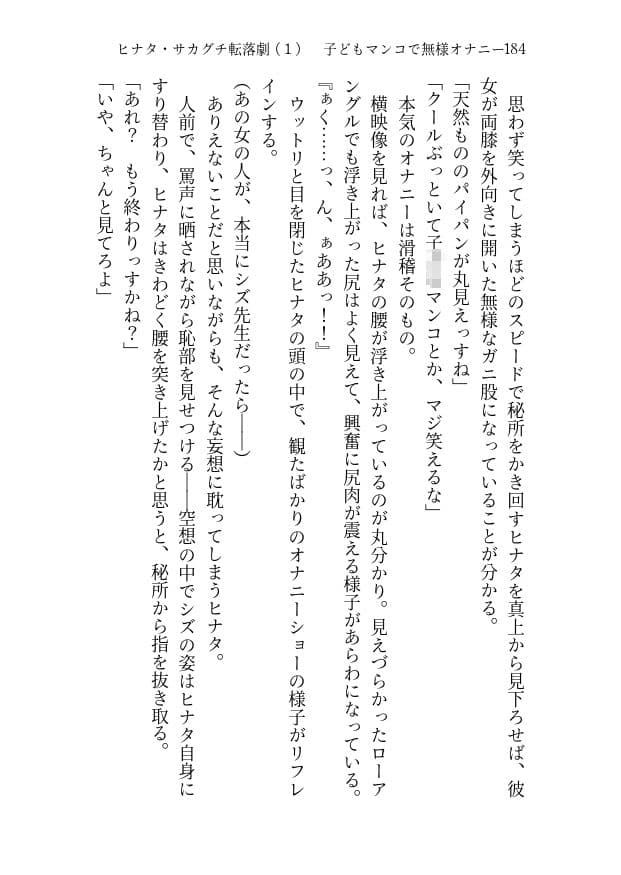 ヒナタ・サカグチ転落劇（１）　子どもマンコで無様オナニー184
　思わず笑ってしまうほどのスピードで秘所をかき回すヒナタを真上から見下ろせば、彼
女が両膝を外向きに開いた無様なガニ股になっていることが分かる。
「天然もののパイパンが丸見えっすね」
「クールぶっといて子マンコとか、マジ笑えるな」
　本気のオナニーは滑稽そのもの。
　横映像を見れば、ヒナタの腰が浮き上がっているのが丸分かり。見えづらかったローア
ングルでも浮き上がった尻はよく見えて、興奮に尻肉が震える様子があらわになっている。
『ぁく……っ、ん、ぁああっ！！』
　ウットリと目を閉じたヒナタの頭の中で、観たばかりのオナニーショーの様子がリフレ
インする。
（あの女の人が、本当にシズ先生だったら――）
　ありえないことだと思いながらも、そんな妄想に耽ってしまうヒナタ。
　人前で、罵声に晒されながら恥部を見せつける――空想の中でシズの姿はヒナタ自身に
すり替わり、ヒナタはきわどく腰を突き上げたかと思うと、秘所から指を抜き取る。
「あれ？　もう終わりっすかね？」
「いや、ちゃんと見てろよ」